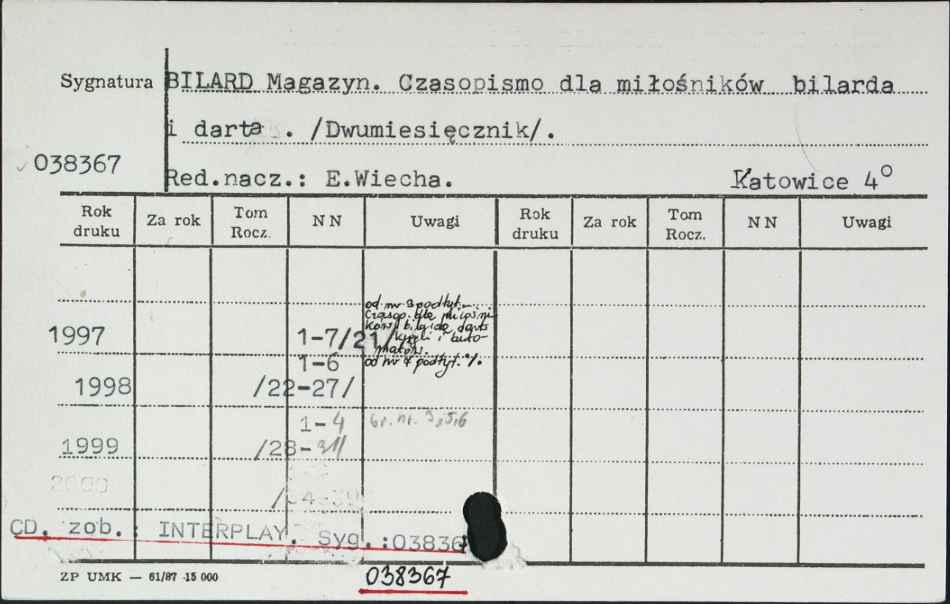 Sygnatura BILARD Magazyn. Czasopismo dla miłośników bilarda
i darta . /Dwumiesięcznik/.
038367
Red.nacz.: E.Wiecha. Katowice 4°
Rok druku Za rok Tom Rocz. NN Uwagi Rok druku Za rok Tom Rocz. NN Uwagi
od nr 3 podtyt.
1997 1-7/21/
1-6 od nr 7 podtyt. %.
1998 /22-27/
1-4 br. nr. 3,5,6
1999 /28-31/
2000
CD. zob.: INTERPLAY. Syg.:03836
ZP UMK — 61/87 15 000
038367